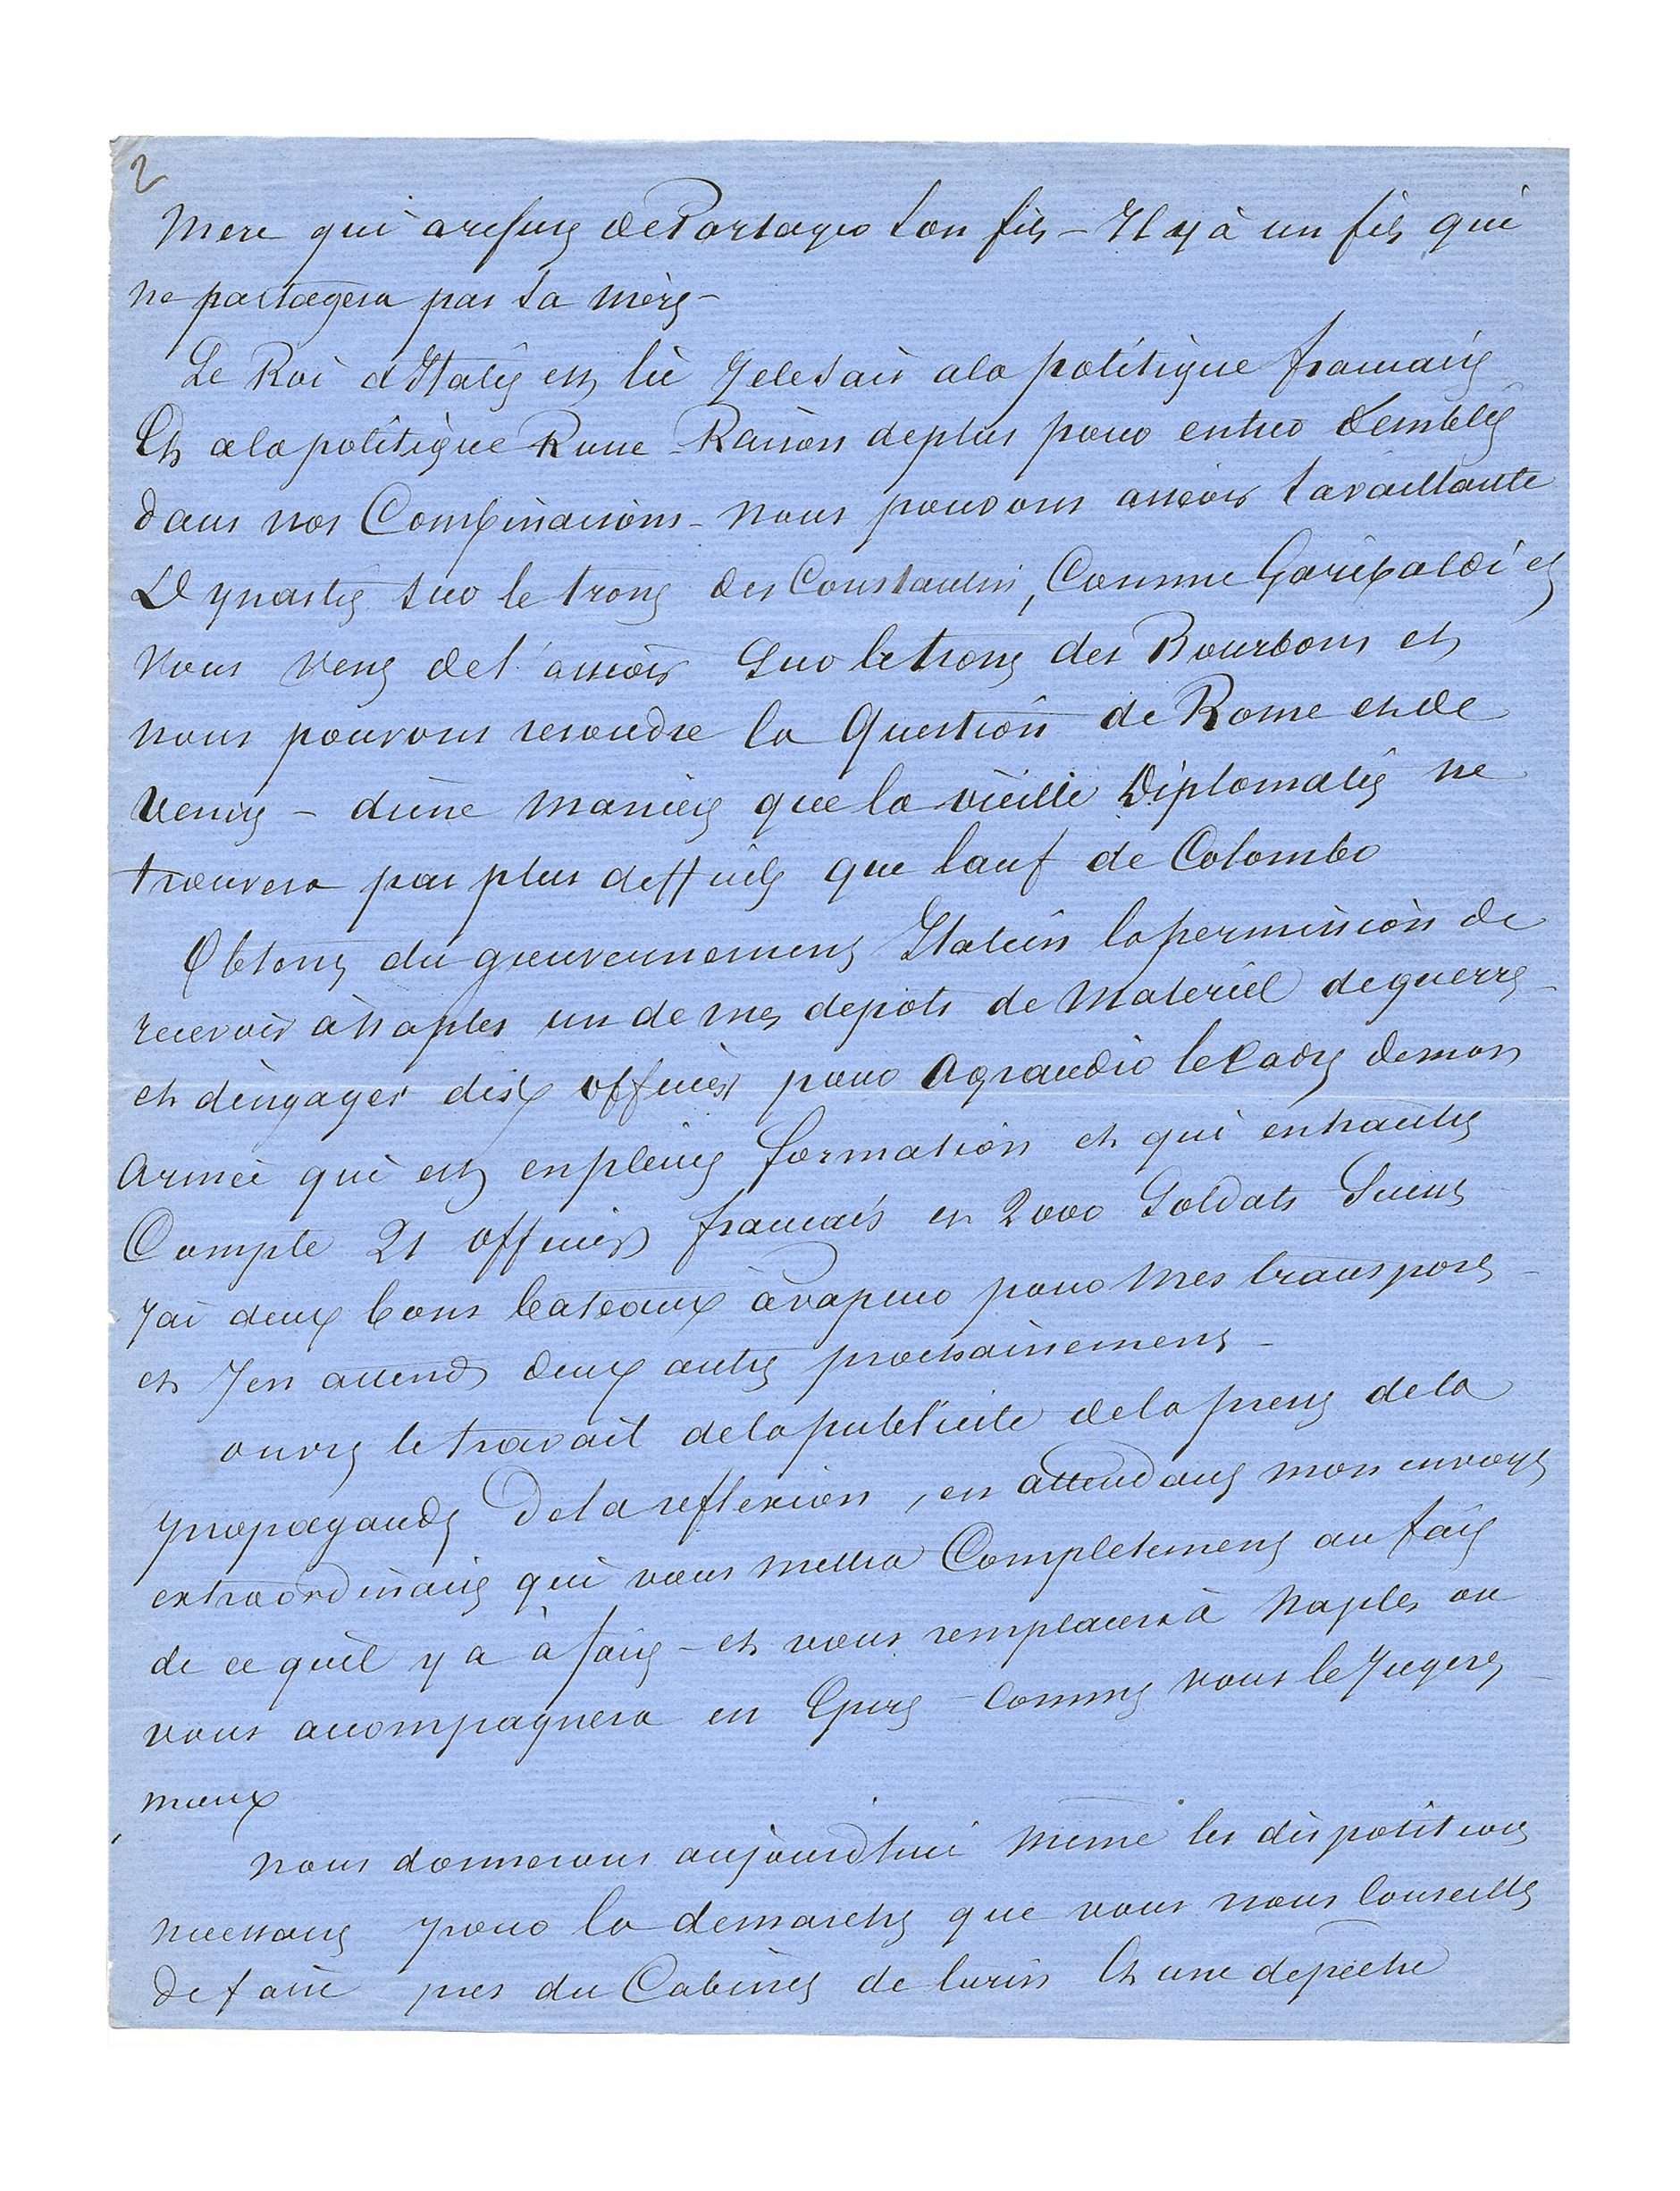 2
Mere qui a refusé de Partager son fils – Il y à un fils qui
ne partagera pas sa mère –
Le Roi d'Italie est lié Je le sais a la politique francaise
Et a la politique Russe Raison de plus pour entrer d'emblée
dans nos Combinaisons – nous pouvons asseoir sa vaillante
Dynastie sur le trone des Constantin, Comme Garibaldi et
nous vens de l'asseoir sur le trone des Bourbons et
nous pouvons resoudre la Question de Rome et de
Venise – d'une maniere que la vieille Diplomatie ne
trouvera pas plus difficile que l'œuf de Colombo
Obtenez du gouvernement Italien la permission de
recevoir à Naples un de mes depots de Materiel de guerre
et d'engager dix officiers pour agrandir le Cadre de mon
Armée qui est en pleine formation et qui
Compte 21 officiers francais et 2000 Soldats
J'ai deux bons bateaux à vapeur pour mes transports
et J'en attends deux autres prochainement –
ouvrez le travail de la publicite de la presse de la
propagande De la reflexion, en attendant mon envoyé
extraordinaire qui vous mettra Completement au fait
de ce qu'il y a à faire – et vous remplacera à Naples ou
vous acompagnera en Epire – Comme vous le Jugerez
mieux
nous donnerons aujourd'hui même les dispositions
necessaires pour la demarche que vous nous Conseillez
de faire pres du Cabinet de Turin Et une depeche